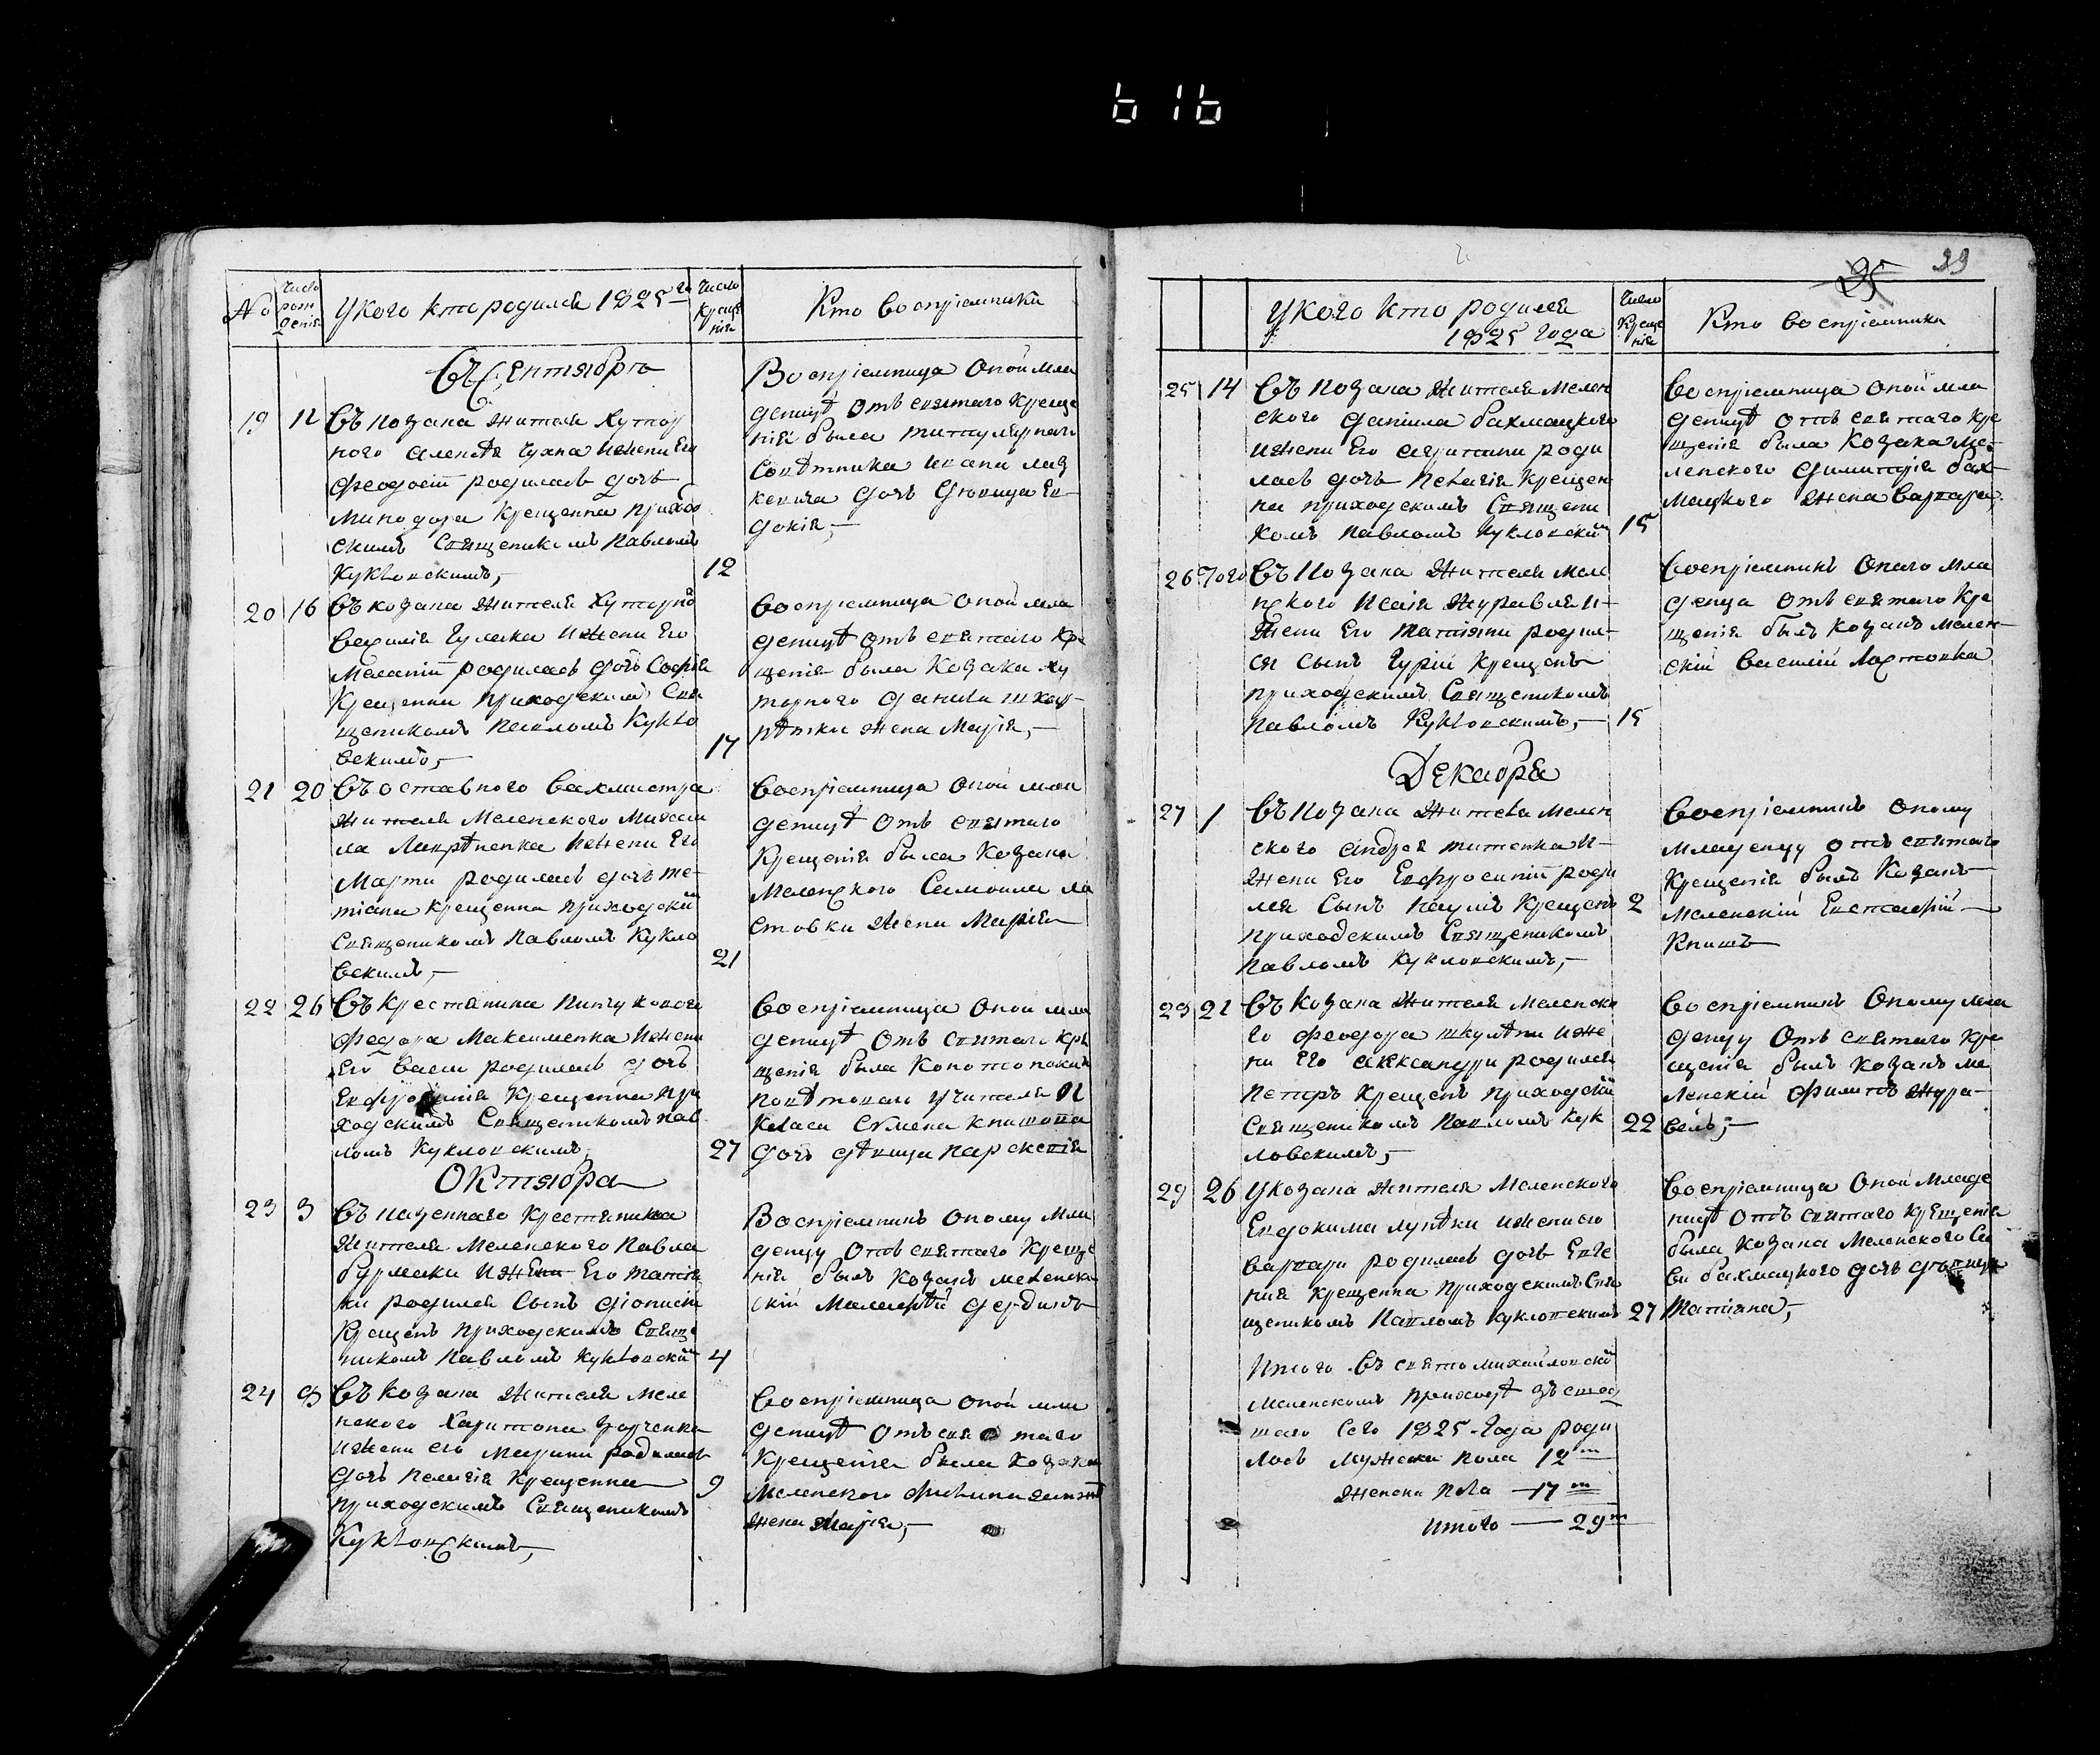 616
№
Число рождения
У кого кто родился 1825го
Число крещения
Кто воспріемники
Въ Сентябрѣ
19 12
Въ козака жителя Хутор
ного Алексѣя Чухна и жены Его
Феодосіи родилась дочь
Минодора крещенна приход
скимъ Священикомъ Павломъ
Кукловскимъ,-
12
Воспріемница оной мла
денцѣ отъ святаго креще
нія была титулярнаго
Совѣтника
дочь дѣвица Ев
докія,-
20 16
Въ козака жителя Хуторно
Василія Гулака и жены Его
Меланіи родилась дочь Софія
Крещенна приходскимъ Свя
щеникомъ Павломъ Кукло
вскимъ,-
17
Воспріемница оной мла
денцѣ отъ святаго кре
щенія была козака Ху
торного Данила
жена Марія,-
21 20
Въ оставного Вахмистра
жителя Меленского Михаи
ла Лаврѣненка и жены Его
Марѳи родилась дочь Та
тіана крещенна приходски
Священикомъ Павломъ Кукло
вскимъ,-
21
Воспріемница оной мла
денцѣ отъ святаго
Крещенія была козака
Меленского Самоила Ла
стовки жена Марія
22 26
Въ крестянина
Федора Максименка и жены
Его Васы родилась дочь
Евфросинія Крещенна при
ходскимъ Священикомъ Пав
ломъ Кукловскимъ
27
Воспріемница оной мла
денцѣ отъ святаго кре
щенія была Конотопскаго
повѣтоваго учителя
класа Семена
дочь дѣвица Параскевія
Октября
23 3
Въ казенного крестянина
жителя Меленского Павла
Бурмаки и жены Его Татія
ны родился сынъ Діонисій
Крещенъ приходскимъ Свяще
никомъ Павломъ Кукловски
4
Воспріемникъ оному мла
денцу отъ святаго креще
нія былъ козакъ Меленск
скій
24 8
Въ козака жителя Меле
нского Харитона
и жены его Марини родилась
дочь Пелагія Крещенна
приходскимъ Священикомъ
Кукловскимъ,
9
Воспріемница оной мла
денцѣ отъ святаго
крещенія была козака
Меленского
жена Марія,-
25 39
У кого кто родился
1825 года
Число крещения
Кто воспріемники
25 14
Въ козака жителя Мелен
ского Данила Бахмацкого
и жены Его роди
лась дочь Пелагія Крещен
на приходскимъ Священи
комъ Павломъ Кукловски
15
Воспріемница оной мла
денцѣ отъ святаго кре
щенія была козака Ме-
ленского Димитрія Бах-
мацкого жена Варвара,
26 Того
Въ козака жителя Меле
нского Исаія Журавля и-
жены Его Татіяны родил-
ся сынъ Гурій Крещенъ
приходскимъ Священикомъ
Павломъ Кукловскимъ,-
15
Воспріемникъ оного мла
денца отъ святаго кре
щенія былъ козакъ Мелен-
скій Василій Ластовка
Декабря
27 1
Въ козака жителя Мелен
ского Андрея Титенка и-
жены Его Евфросиніи роди
лся сынъ Наумъ Крещенъ
приходскимъ Священикомъ
Павломъ Кукловскимъ,-
2
Воспріемникъ оному
младенцу отъ святаго
Крещенія былъ козакъ
Меленскій Евстафій
Книшъ
28 21
Въ козака жителя Меленско
го Феодора и же
ны Его Александры родился
Петръ Крещенъ приходски
Священикомъ Павломъ Кук
ловскимъ,-
22
Воспріемникъ оному мла
денцу отъ святаго кре
щенія былъ козакъ Ме
ленскій Филипъ Жура-
вель,-
29 26
У козака жителя Меленского
Евдокима и жены его
Варвары родилась дочь Евге
нія крещенна приходскимъ Свя
щеникомъ Павломъ Кукловскимъ
27
Воспріемница оной младе
нцѣ отъ святаго крещенія
была козака Меленского Са
вы Бахмацкого дочь дѣвица
Татіяна,-
Итого въ свято Михайловско
Меленскомъ приходѣ
сего 1825 Года роди
лось мужеска пола 12
женска пола — 17
итого — 29